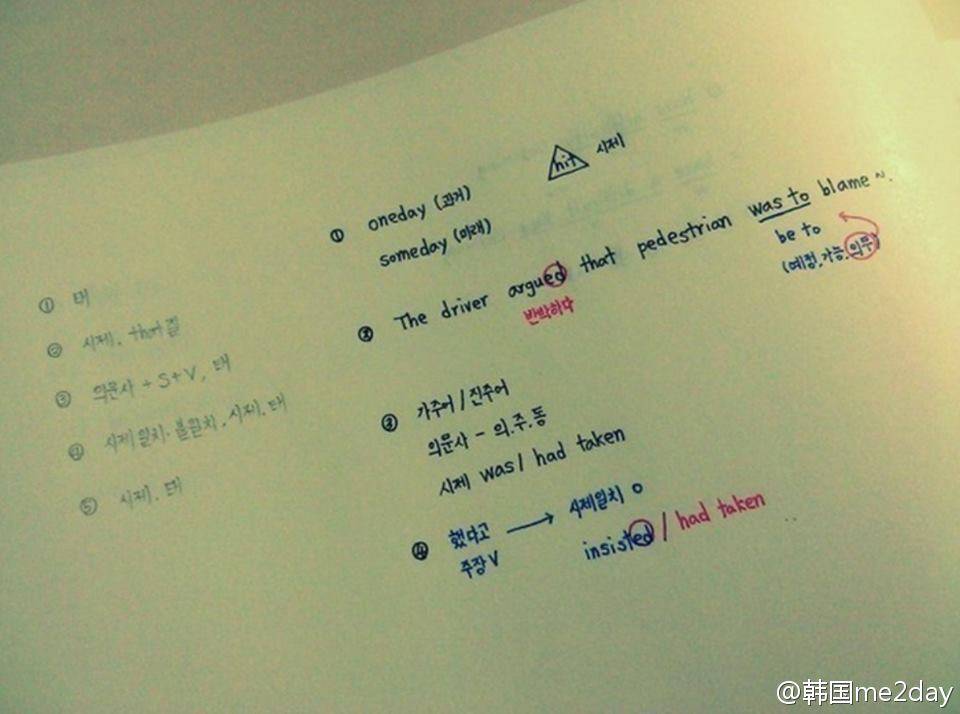 ① 태
② 시제. that절
③ 의문사 + S+V, 태
④ 시제일치·불일치, 시제. 태
⑤ 시제. 태
① oneday (과거)
hit 시제
someday (미래)
② The driver argued that pedestrian was to blame ~.
반박하다
be to
(예정. 가능. 의무)
③ 가주어 / 진주어
의문사 - 의.주.동
시제 was / had taken
④ 했다고 → 시제일치 o
주장V insisted / had taken
@韩国me2day